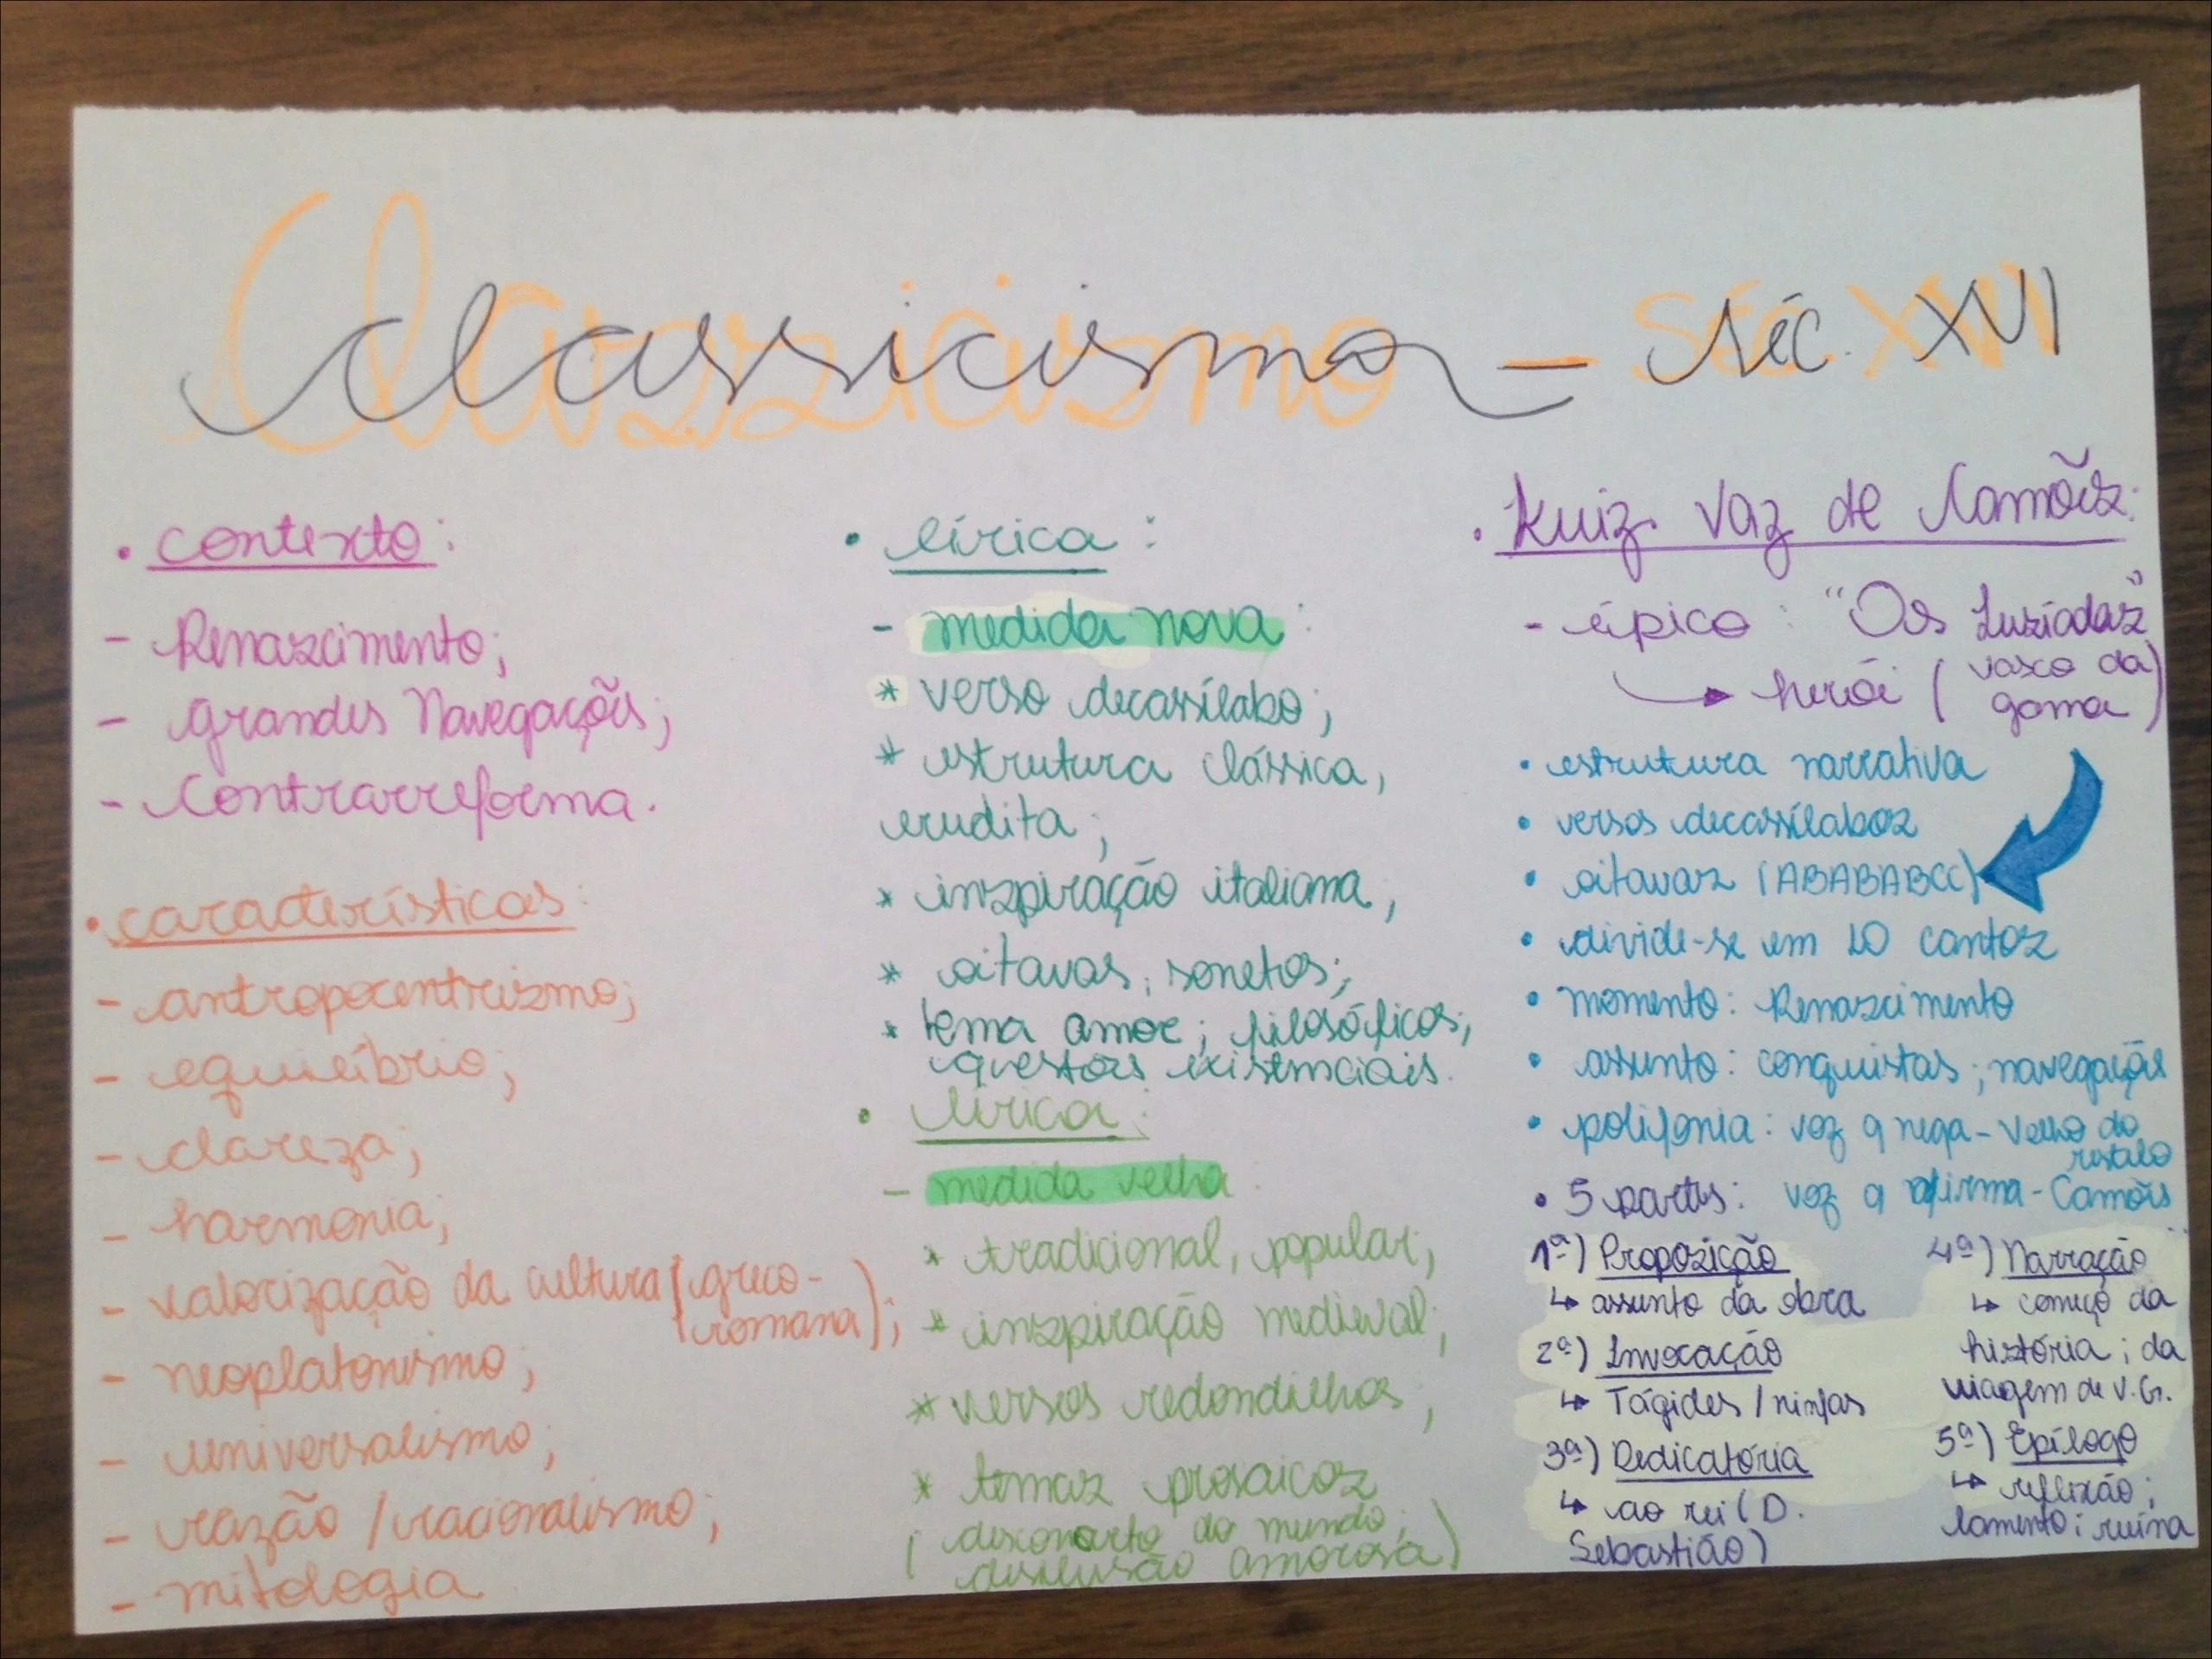 Classicismo - Séc. XVI
• contexto:
- Renascimento;
- Grandes Navegações;
- Contrarreforma.
• características:
- antropocentrismo;
- equilíbrio;
- clareza;
- harmonia;
- valorização da cultura (greco-
romana);
- neoplatonismo;
- universalismo;
- razão / racionalismo;
- mitologia
• lírica:
- medida nova:
* verso decassílabo;
* estrutura clássica,
erudita;
* inspiração italiana,
* oitavas, sonetos;
* tema amor; filosóficos;
questões existenciais.
• lírica:
- medida velha:
* tradicional, popular;
* inspiração medieval;
* versos redondilhos;
* temas prosaicos
( desconcerto do mundo;
desilusão amorosa)
• Luiz Vaz de Camões:
- épico: "Os Lusíadas"
herói (vasco da
gama)
• estrutura narrativa
• versos decassílabos
• oitavas (ABABABCC)
• divide-se em 10 cantos
• momento: Renascimento
• assunto: conquistas; navegações
• polifonia: voz q nega - Velho do
restelo
voz q afirma - Camões
• 5 partes:
1ª) Proposição
↳ assunto da obra
2ª) Invocação
↳ Tágides / ninfas
3ª) Dedicatória
↳ ao rei (D.
Sebastião)
4ª) Narração
↳ começo da
história; da
viagem de V.G.
5ª) Epílogo
↳ reflexão;
lamento; ruína